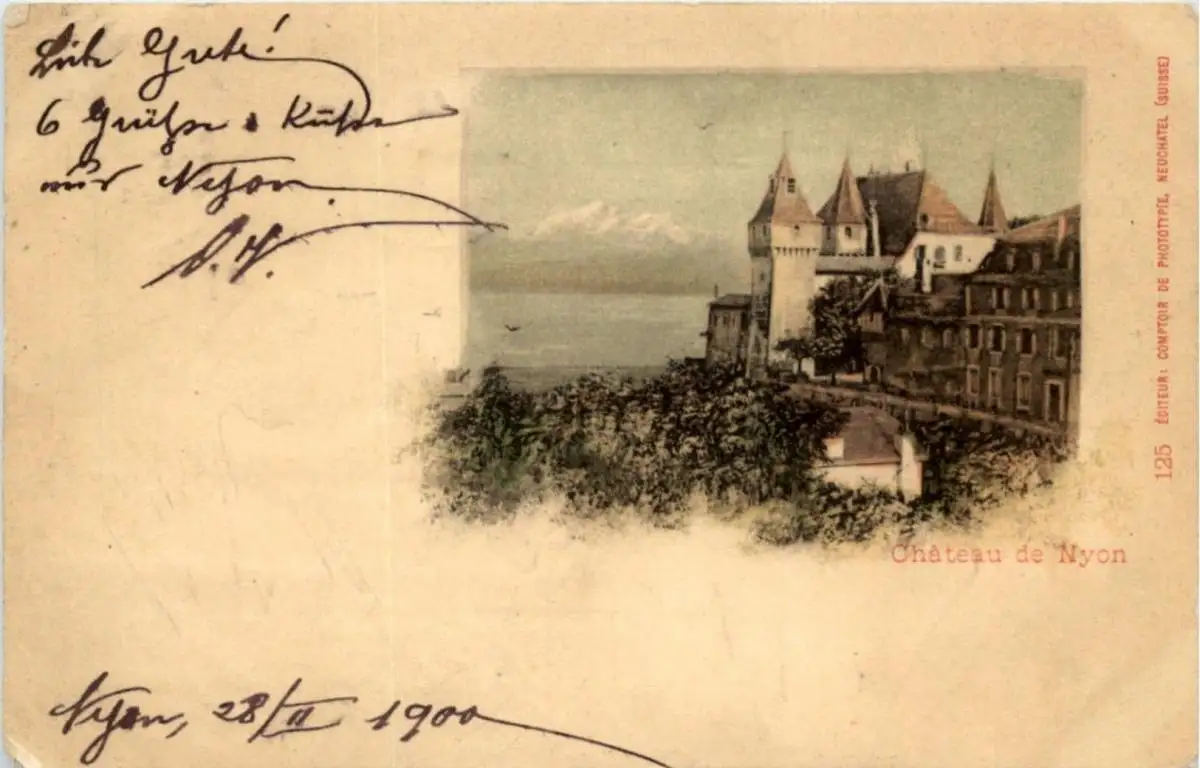 Liebe Grete!
6 Grüße & Küsse
aus Nyon.
O. H.
Château de Nyon
125 ÉDITEUR: COMPTOIR DE PHOTOTYPIE, NEUCHATEL (SUISSE)
Nyon, 28/II 1900